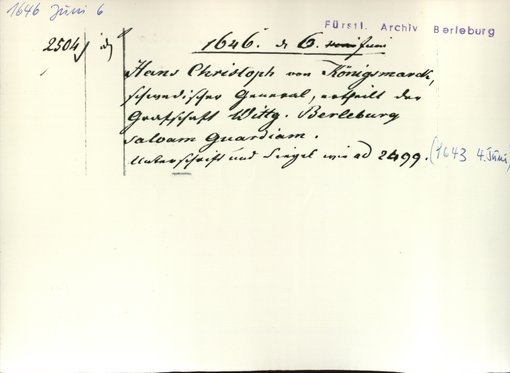 1646 Juni 6
Fürstl. Archiv Berleburg
2504
1646. d 6. Juni
Hans Christoph von Königsmarck,
schwedischer General, ertheilt der
Grafschaft Wittg. Berleburg
salvam Guardiam.
Unterschrift und Siegel wie ad 2499. (1643 4. Juni)